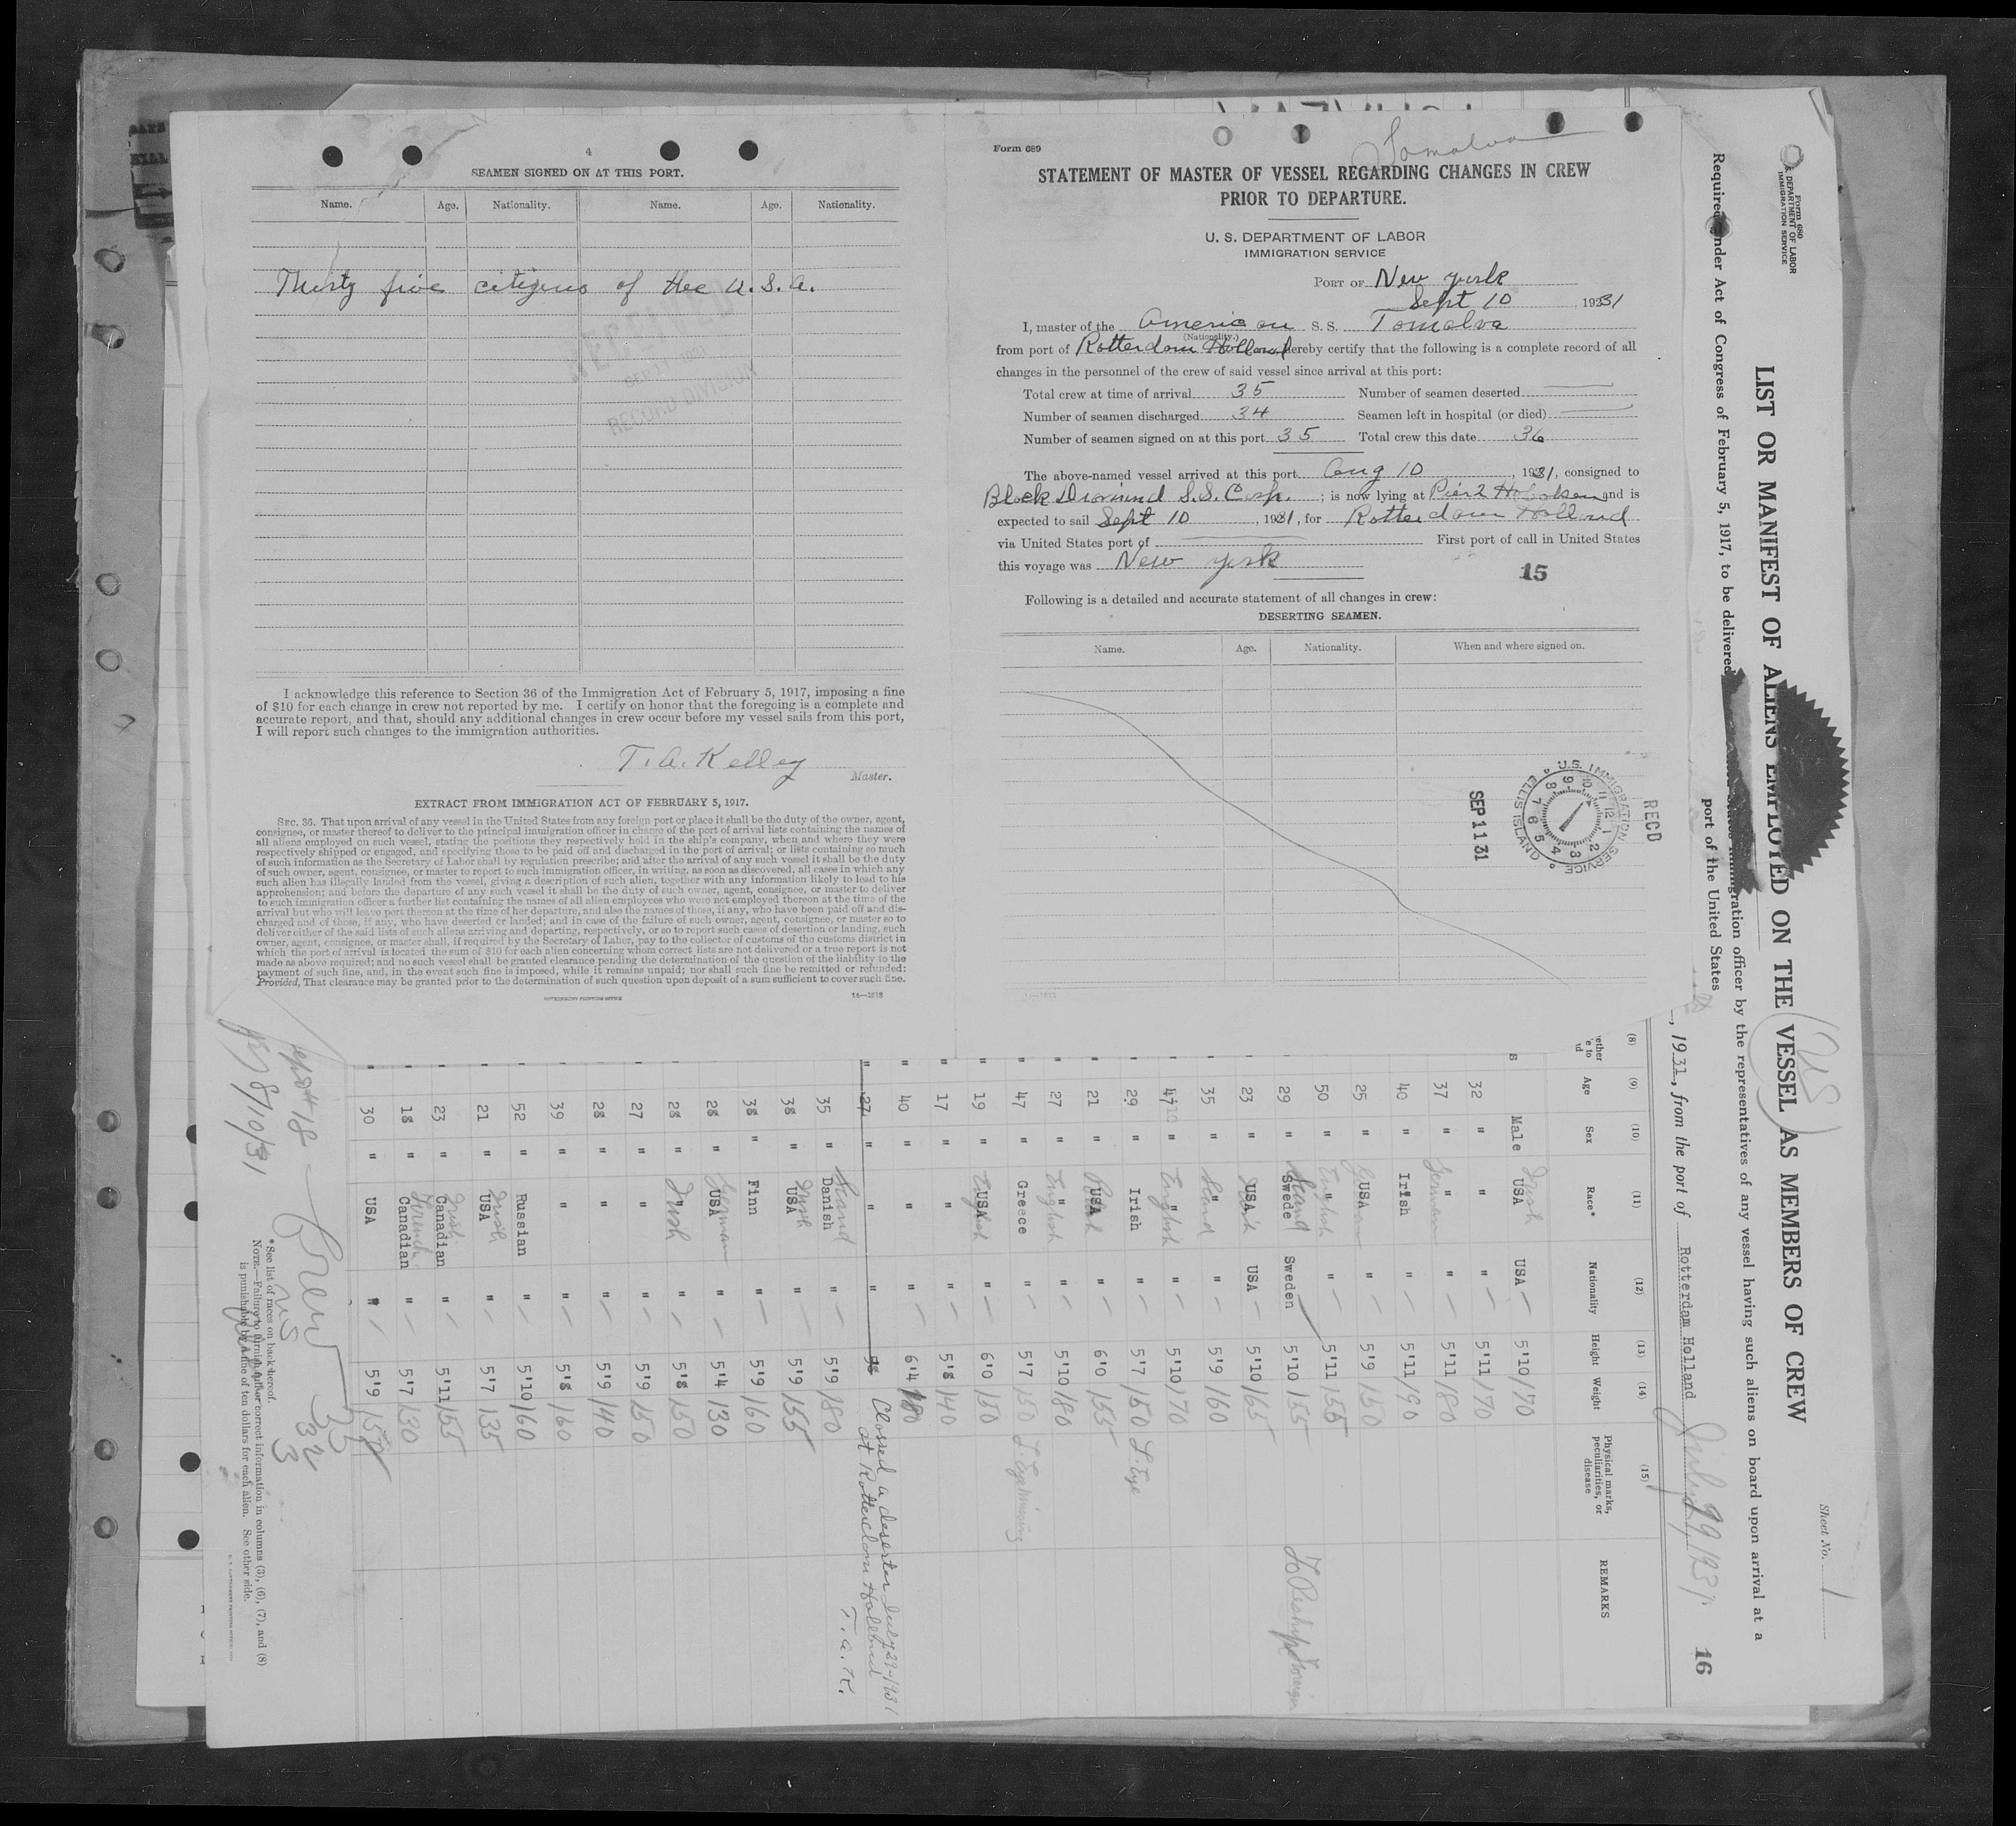 4
SEAMEN SIGNED ON AT THIS PORT.
Name. Age. Nationality. Name. Age. Nationality.
Thirty five citizens of the U.S.A.
RECEIVED
SEP 17 1931
RECORD DIVISION
I acknowledge this reference to Section 36 of the Immigration Act of February 5, 1917, imposing a fine
of $10 for each change in crew not reported by me. I certify on honor that the foregoing is a complete and
accurate report, and that, should any additional changes in crew occur before my vessel sails from this port,
I will report such changes to the immigration authorities.
T. A. Kelley
Master.
EXTRACT FROM IMMIGRATION ACT OF FEBRUARY 5, 1917.
SEC. 36. That upon arrival of any vessel in the United States from any foreign port or place it shall be the duty of the owner, agent,
consignee, or master thereof to deliver to the principal immigration officer in charge of the port of arrival lists containing the names of
all aliens employed on such vessel, stating the positions they respectively hold in the ship's company, when and where they were
respectively shipped or engaged, and specifying those to be paid off and discharged in the port of arrival; or lists containing so much
of such information as the Secretary of Labor shall by regulation prescribe; and after the arrival of any such vessel it shall be the duty
of such owner, agent, consignee, or master to report to such immigration officer, in writing, as soon as discovered, all cases in which any
such alien has illegally landed from the vessel, giving a description of such alien, together with any information likely to lead to his
apprehension; and before the departure of any such vessel it shall be the duty of such owner, agent, consignee, or master to deliver
to such immigration officer a further list containing the names of all alien employees who were not employed thereon at the time of the
arrival but who will leave port thereon at the time of her departure, and also the names of those, if any, who have been paid off and dis-
charged and of those, if any, who have deserted or landed; and in case of the failure of such owner, agent, consignee, or master so to
deliver either of the said lists of such aliens arriving and departing, respectively, or so to report such cases of desertion or landing, such
owner, agent, consignee, or master shall, if required by the Secretary of Labor, pay to the collector of customs of the customs district in
which the port of arrival is located the sum of $10 for each alien concerning whom correct lists are not delivered or a true report is not
made as above required; and no such vessel shall be granted clearance pending the determination of the question of the liability to the
payment of such fine, and, in the event such fine is imposed, while it remains unpaid; nor shall such fine be remitted or refunded:
Provided, That clearance may be granted prior to the determination of such question upon deposit of a sum sufficient to cover such fine.
GOVERNMENT PRINTING OFFICE 14—1298
Tomalva
Form 689
STATEMENT OF MASTER OF VESSEL REGARDING CHANGES IN CREW
PRIOR TO DEPARTURE.
U. S. DEPARTMENT OF LABOR
IMMIGRATION SERVICE
PORT OF New York
Sept 10 1931
I, master of the American S. S. Tomalva
(Nationality.)
from port of Rotterdam Holland hereby certify that the following is a complete record of all
changes in the personnel of the crew of said vessel since arrival at this port:
Total crew at time of arrival 35 Number of seamen deserted
Number of seamen discharged 34 Seamen left in hospital (or died)
Number of seamen signed on at this port 35 Total crew this date 36
The above-named vessel arrived at this port Aug 10, 1931, consigned to
Black Diamond S.S. Corp. ; is now lying at Pier 2 Hoboken and is
expected to sail Sept 10, 1931, for Rotterdam Holland
via United States port of First port of call in United States
this voyage was New York
15
Following is a detailed and accurate statement of all changes in crew:
DESERTING SEAMEN.
Name. Age. Nationality. When and where signed on.
SEP 11 31
U.S. IMMIGRATION SERVICE ELLIS ISLAND
RECD
Form 680
U. S. DEPARTMENT OF LABOR
IMMIGRATION SERVICE
Sheet No. 1
LIST OR MANIFEST OF ALIENS EMPLOYED ON THE VESSEL AS MEMBERS OF CREW
(US)
Required under Act of Congress of February 5, 1917, to be delivered immigration officer by the representatives of any vessel having such aliens on board upon arrival at a
port of the United States
, 1931, from the port of Rotterdam Holland July 29 1931
16
(8) (9) (10) (11) (12) (13) (14) (15)
Age Sex Race* Nationality Height Weight Physical marks, peculiarities, or disease REMARKS
Male USA Irish USA 5'10 170
32 " " " 5'11 170
37 " " German " 5'11 180
40 " Irish " 5'11 190
25 " USA " 5'9 150
50 " " English " 5'11 155
29 " Swede Scand Sweden 5'10 155 To Reship Foreign
23 " USA USA 5'10 165
35 " " Scand " 5'9 160
47 " " English " 5'10 170
29 " Irish " 5'7 150
21 " USA " 6'0 155
27 " " English " 5'10 180
47 " Greece " 5'7 150
19 " USA English " 6'0 150
17 " " " 5'8 140
40 " " " 6'4 180
27 " " " Classed a deserter July 29-1931
at Rotterdam Holland
T. A. K.
35 " Danish Scand " 5'9 180
38 " USA Irish " 5'9 155
38 " Finn " 5'9 160
28 " USA German " 5'4 130
28 " " Irish " 5'8 150
27 " " " 5'9 150
28 " " " 5'9 140
39 " " " 5'8 160
52 " Russian " 5'10 160
21 " USA Irish " 5'7 135
23 " Canadian Irish " 5'11 155
18 " Canadian French " 5'7 130
30 " USA " 5'9
*See list of races on back hereof.
NOTE.—Failure to furnish full or correct information in columns (3), (6), (7), and (8)
is punishable by a fine of ten dollars for each alien. See other side.
Crew 35
US 32
3
8/10/31